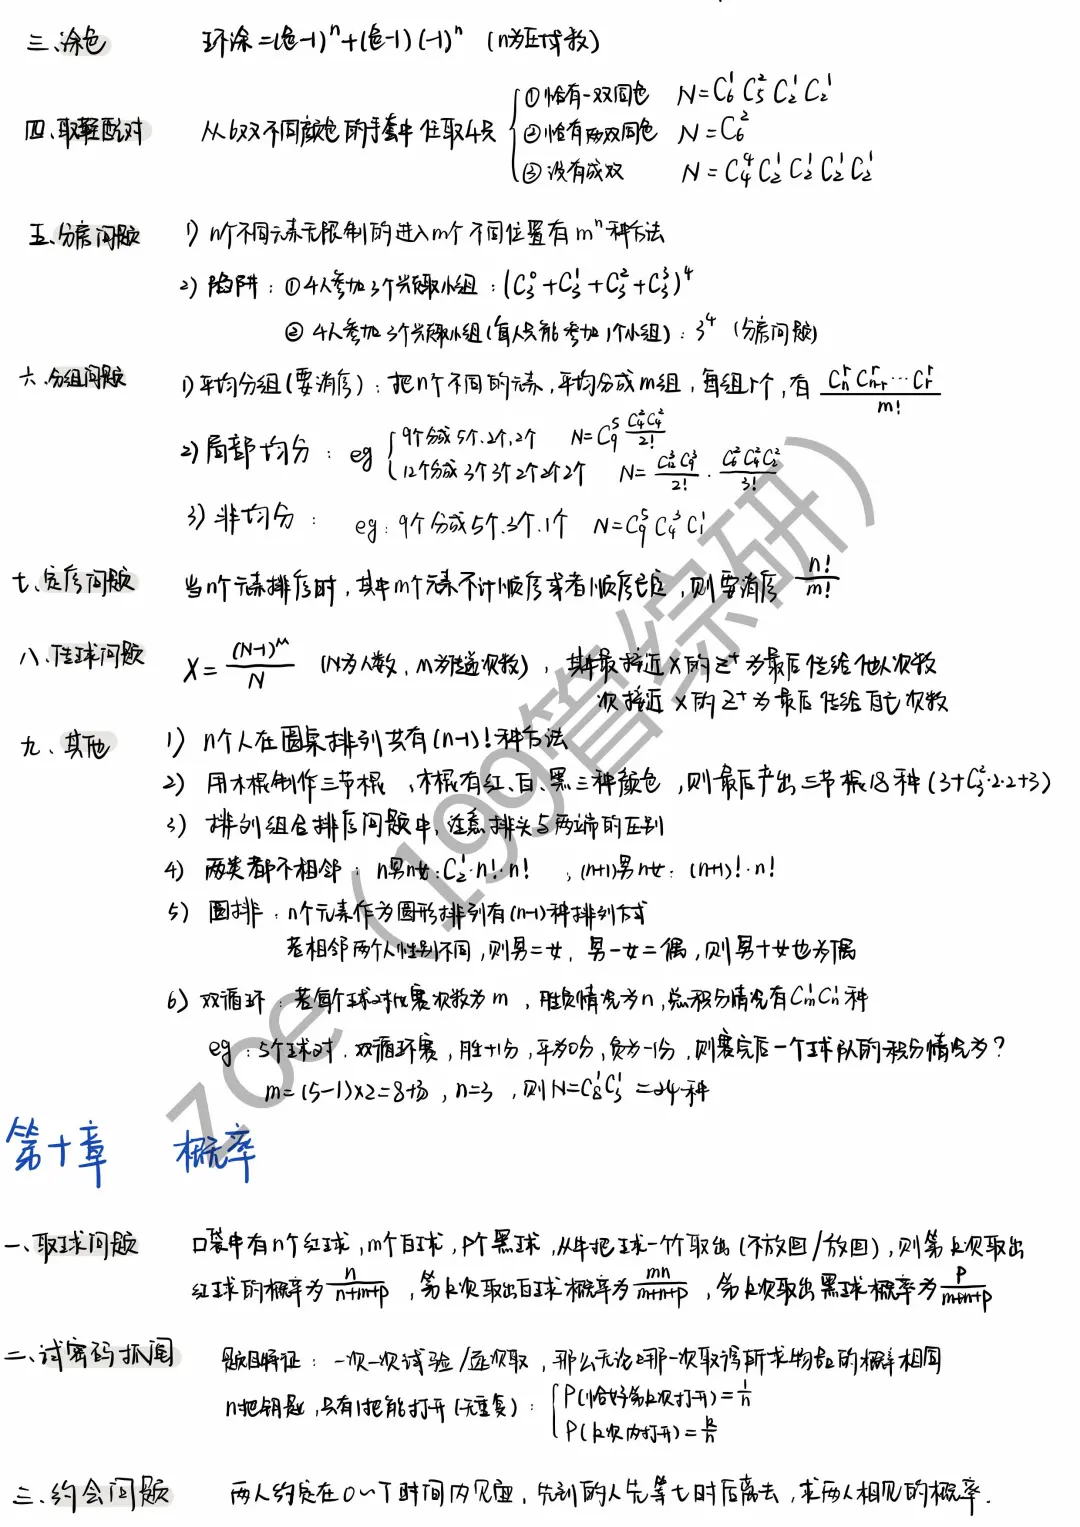 三、涂色 环涂=(色-1)ⁿ+(色-1)(-1)ⁿ (n为区域数)
四、取鞋配对 从6双不同颜色的手套中任取4只
①恰有一双同色 N=C₆¹C₅²C₂¹C₂¹
②恰有两双同色 N=C₆²
③没有成双 N=C₄⁴C₂¹C₂¹C₂¹C₂¹
五、分房问题 1) n个不同元素无限制的进入m个不同位置有mⁿ种方法
2) 陷阱:①4人参加3个兴趣小组:(C₃⁰+C₃¹+C₃²+C₃³)⁴
②4人参加3个兴趣小组(每人只能参加1个小组):3⁴ (分房问题)
六、分组问题 1)平均分组(要消序):把n个不同的元素,平均分成m组,每组r个,有 CₙʳCₙ₋ᵣʳ…Cᵣʳ/m!
2)局部均分: eg
9个分成5个.2个.2个 N=C₉⁵ C₄²C₂²/2!
12个分成3个3个2个2个2个 N=C₁₂³C₉³/2! · C₆²C₄²C₂²/3!
3)非均分: eg:9个分成5个.3个.1个 N=C₉⁵C₄³C₁¹
七、定序问题 当n个元素排序时,其中m个元素不计顺序或者顺序已定,则要消序 n!/m!
八、传球问题 X=(N-1)ᴹ/N (N为人数,M为传递次数),其中最接近X的Z⁺为最后传给他人次数
次接近X的Z⁺为最后传给自己次数
九、其他 1) n个人在圆桌排列共有(n-1)!种方法
2) 用木棍制作三节棍,木棍有红、白、黑三种颜色,则最后产出三节棍18种(3+C₃²·2·2+3)
3) 排列组合排序问题中,注意排头与两端的区别
4) 两类都不相邻:n男n女:C₂¹·n!·n! ,(n+1)男n女:(n+1)!·n!
5) 圆排:n个元素作为圆形排列有(n-1)种排列方式
若相邻两个人性别不同,则男=女,男-女=偶,则男+女也为偶
6) 双循环:若每个球对比赛次数为m,胜负情况为n,总积分情况有Cₘ¹Cₙ¹种
eg:5个球对.双循环赛,胜+1分,平为0分,负为-1分,则赛完后一个球队的积分情况为?
m=(5-1)×2=8场,n=3,则N=C₈¹C₃¹=24种
第十章 概率
一、取球问题 口袋中有n个红球,m个白球,p个黑球,从中把球一个个取出(不放回/放回),则第k次取出
红球的概率为 n/n+m+p,第k次取出白球概率为 m/m+n+p,第k次取出黑球概率为 p/m+n+p
二、试密码抓阄 题目特征:一次一次试验/逐次取,那么无论哪一次取得所求物品的概率相同
n把钥匙,只有1把能打开(无重复):
P(恰好第k次打开)=1/n
P(k次内打开)=k/n
三、约会问题 两人约定在0~T时间内见面,先到的人先等t时后离去,求两人相见的概率.
zoe(199管综研)